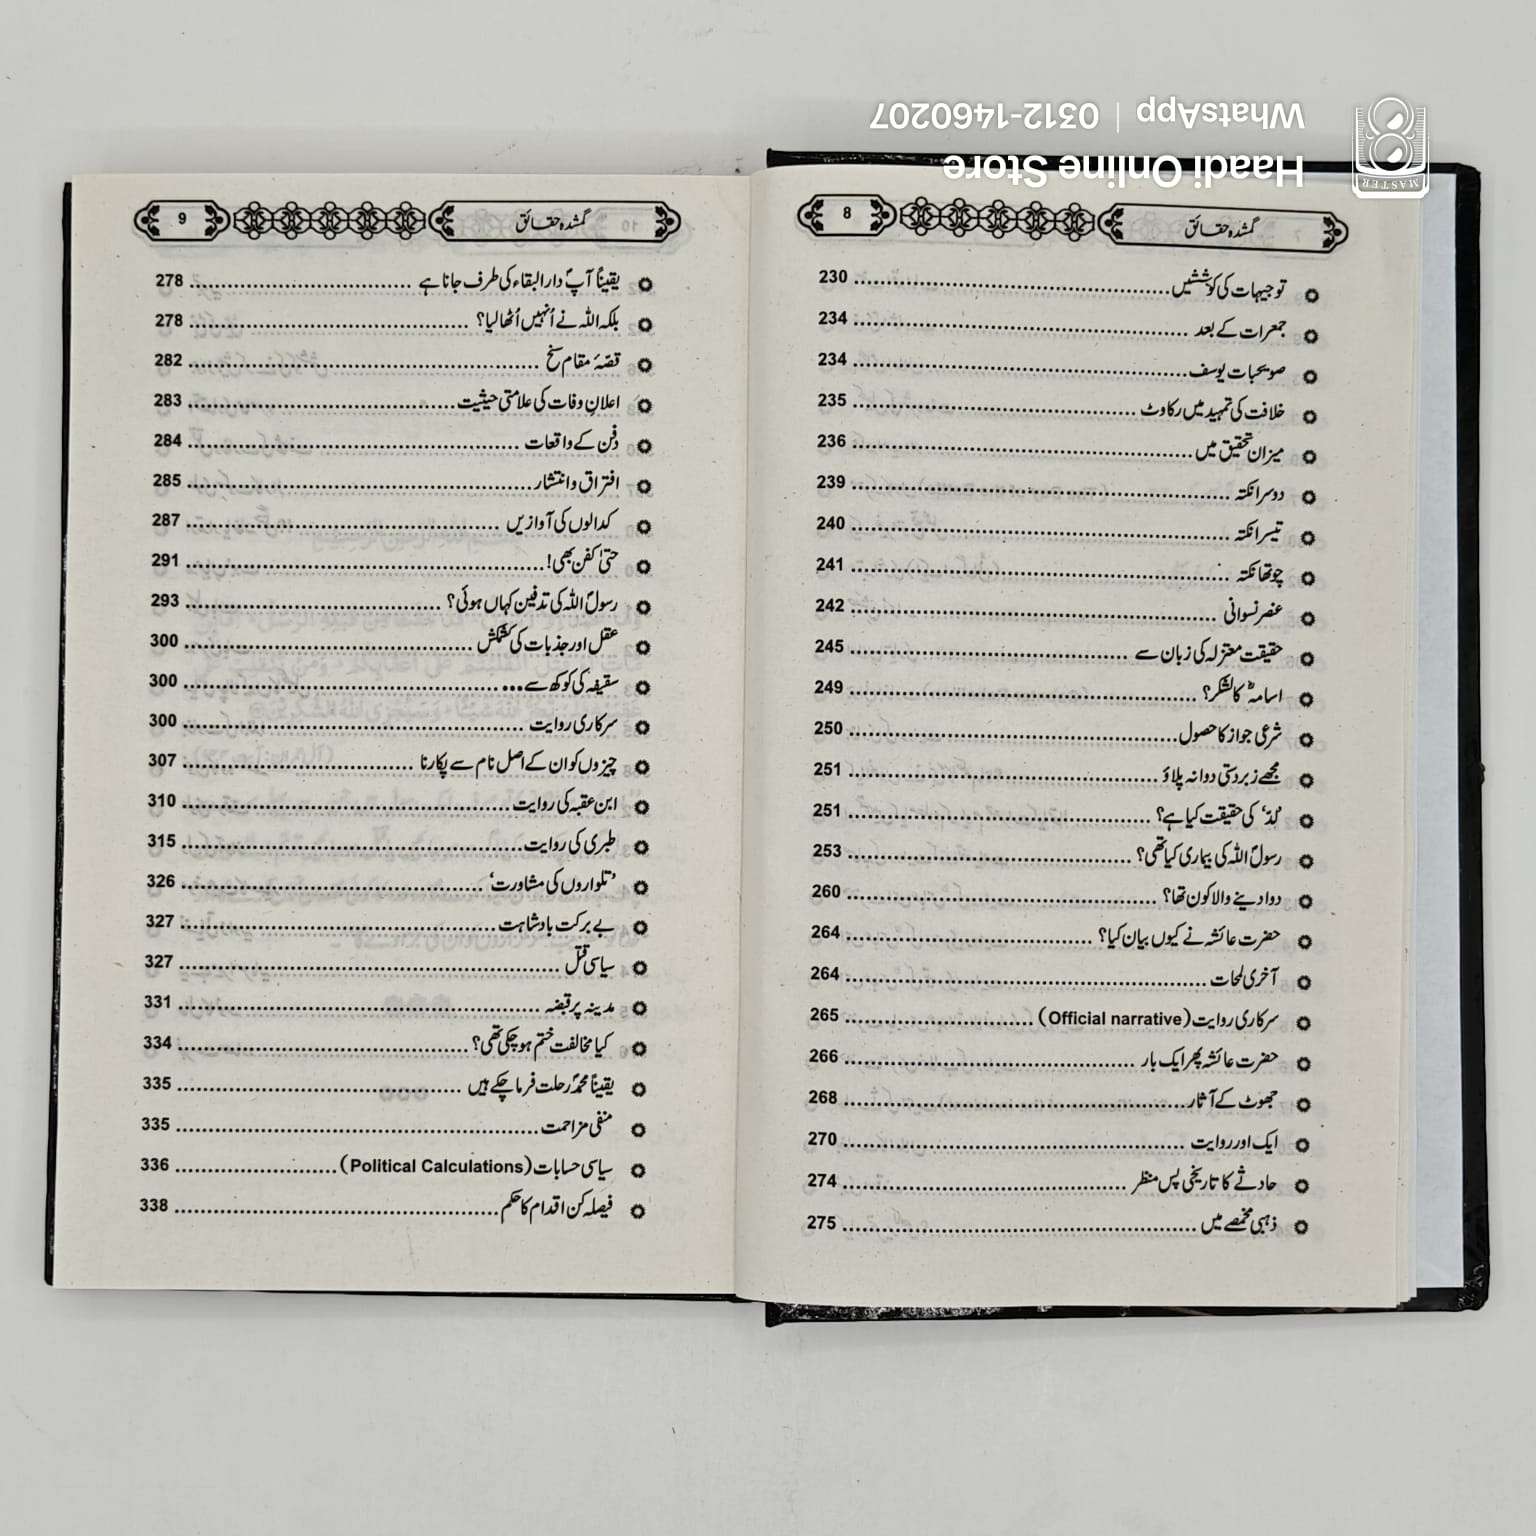 WhatsApp | 0312-1460207
Haadi Online Store
MASTER
گمشدہ حقائق 8
توجیہات کی کوششیں 230
جمعرات کے بعد 234
صویحبات یوسف 234
خلافت کی تمہید میں رکاوٹ 235
میزان تحقیق میں 236
دوسرا نکتہ 239
تیسرا نکتہ 240
چوتھا نکتہ 241
عنصر نسوانی 242
حقیقت معتزلہ کی زبان سے 245
اسامہؓ کا لشکر؟ 249
شرعی جواز کا حصول 250
مجھے زبردستی دوا نہ پلاؤ 251
’لُد‘ کی حقیقت کیا ہے؟ 251
رسولؐ اللہ کی بیماری کیا تھی؟ 253
دوا دینے والا کون تھا؟ 260
حضرت عائشہ نے کیوں بیان کیا؟ 264
آخری لمحات 264
سرکاری روایت (Official narrative) 265
حضرت عائشہ پھر ایک بار 266
جھوٹ کے آثار 268
ایک اور روایت 270
حادثے کا تاریخی پس منظر 274
ذہبی مخمصے میں 275
گمشدہ حقائق 9
یقیناً آپؐ دارالبقاء کی طرف جانا ہے 278
بلکہ اللہ نے اُنہیں اُٹھا لیا؟ 278
قصّۂ مقام سُنح 282
اعلانِ وفات کی علامتی حیثیت 283
دفن کے واقعات 284
افتراق و انتشار 285
کدالوں کی آوازیں 287
حتیٰ کفن بھی! 291
رسولؐ اللہ کی تدفین کہاں ہوئی؟ 293
عقل اور جذبات کی کشمکش 300
سقیفہ کی کوکھ سے... 300
سرکاری روایت 300
چیزوں کو ان کے اصل نام سے پکارنا 307
ابن عقبہ کی روایت 310
طبری کی روایت 315
’تلواروں کی مشاورت‘ 326
بے برکت بادشاہت 327
سیاسی قتل 327
مدینہ پر قبضہ 331
کیا مخالفت ختم ہو چکی تھی؟ 334
یقیناً محمدؐ رحلت فرما چکے ہیں 335
منفی مزاحمت 335
سیاسی حسابات (Political Calculations) 336
فیصلہ کن اقدام کا حکم 338